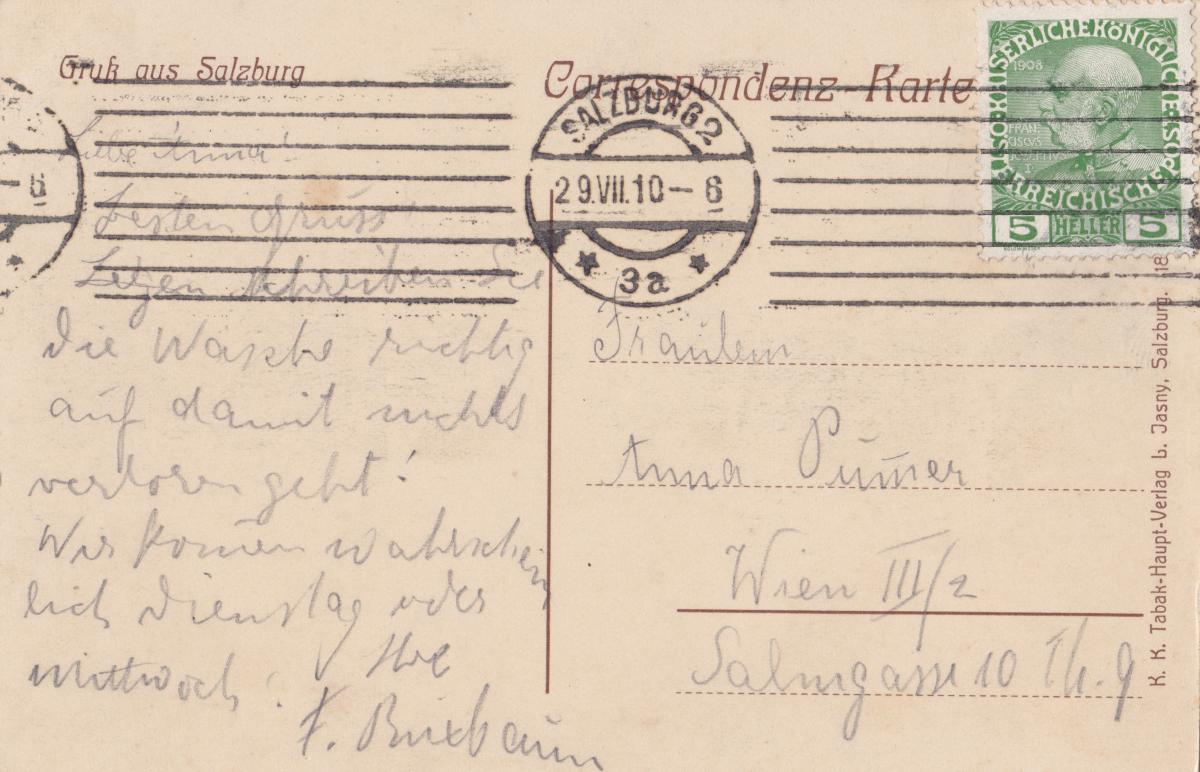 Gruß aus Salzburg
Correspondenz-Karte
KAISERLICHE KÖNIGLICHE ÖSTERREICHISCHE POST
1908
5 HELLER 5
SALZBURG 2
29.VII.10–6
3a
6
Liebe Anna!
Besten Gruss!
schreiben Sie
die Wäsche richtig
auf damit nichts
verloren geht!
Wir komen wahrschein
lich Dienstag oder
Mittwoch!
Ihre
F. Buxbaum
Fräulein
Anna
Wien III/2
Salmgasse 10 Th. 9
K. K. Tabak-Haupt-Verlag L. Jasny, Salzburg. 18